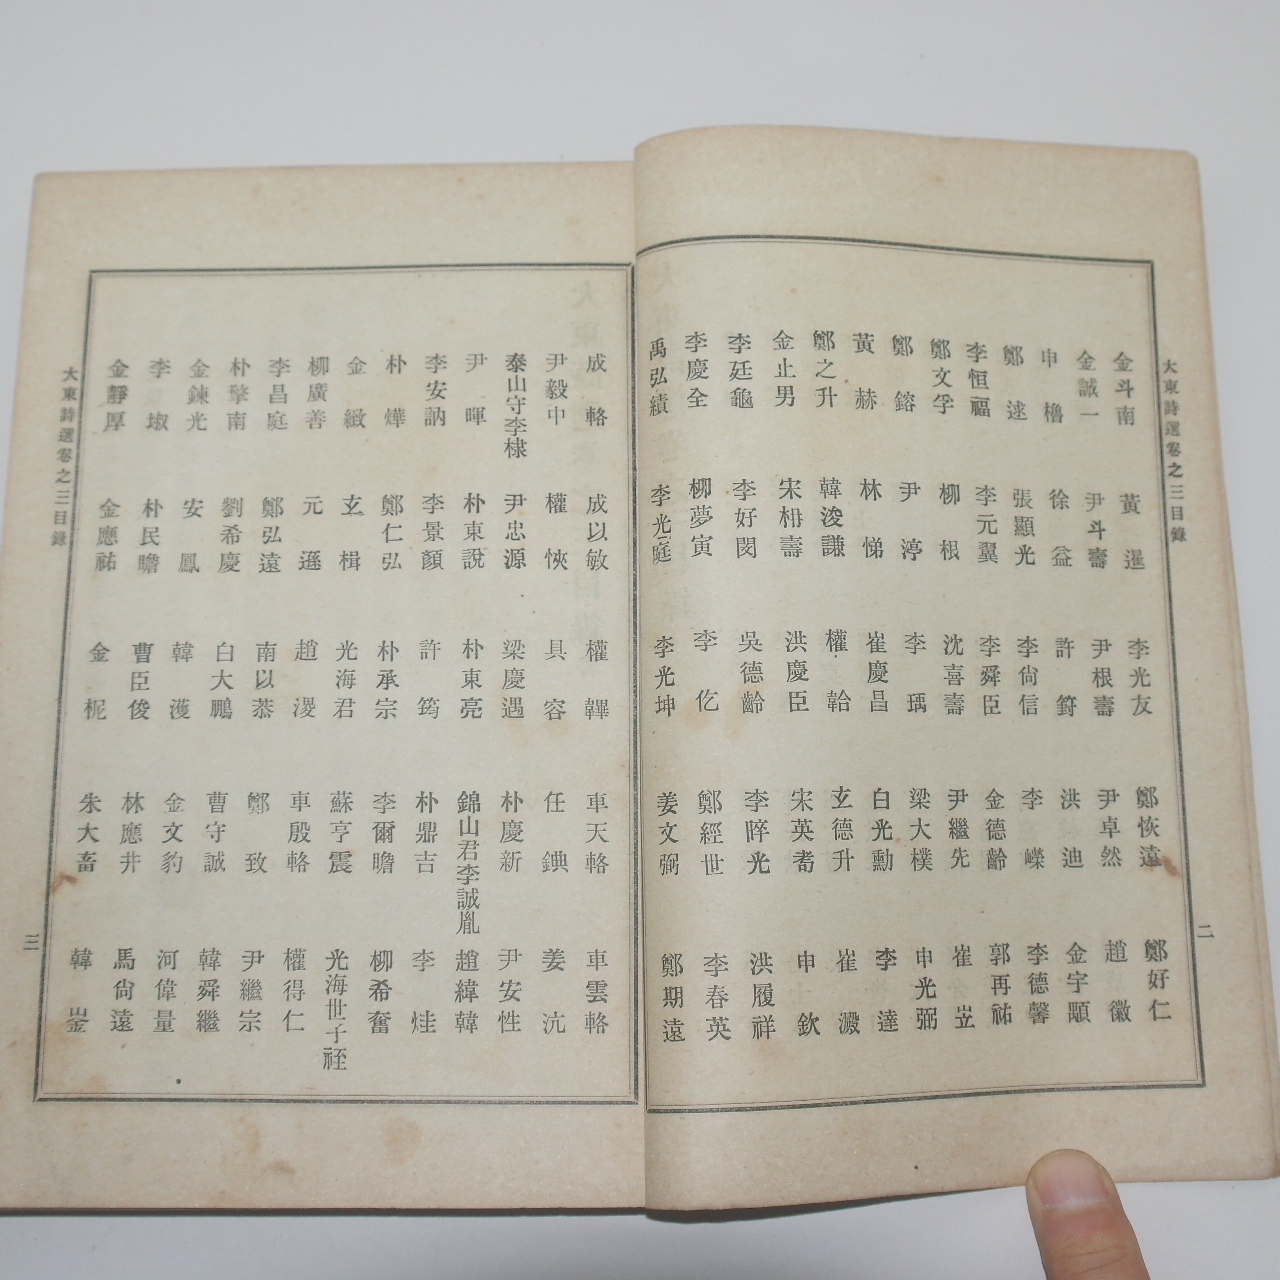 大東詩選卷之三目錄
金斗南 黃暹 李光友 鄭恢遠 鄭好仁
金誠一 尹斗壽 尹根壽 尹卓然 趙徽
申櫓 徐益 許篈 洪迪 金宇顒
鄭逑 張顯光 李尙信 李嶸 李德馨
李恒福 李元翼 李舜臣 金德齡 郭再祐
鄭文孚 柳根 沈喜壽 尹繼先 崔岦
鄭鎔 尹渟 李瑀 梁大樸 申光弼
黃赫 林悌 崔慶昌 白光勳 李達
鄭之升 韓浚謙 權韐 玄德升 崔澱
金止男 宋枏壽 洪慶臣 宋英耉 申欽
李廷龜 李好閔 吳德齡 李晬光 洪履祥
李慶全 柳夢寅 李仡 鄭經世 李春英
禹弘績 李光庭 李光坤 姜文弼 鄭期遠
二
成輅 成以敏 權韠 車天輅 車雲輅
尹毅中 權悏 具容 任錪 姜沆
泰山守李棣 尹忠源 梁慶遇 朴慶新 尹安性
尹暉 朴東說 朴東亮 錦山君李誠胤 趙緯韓
李安訥 李景顏 許筠 朴鼎吉 李烓
朴燁 鄭仁弘 朴承宗 李爾瞻 柳希奮
金緻 玄楫 光海君 蘇亨震 光海世子祬
柳廣善 元遜 趙溭 車殷輅 權得仁
李昌庭 鄭弘遠 南以恭 鄭致 尹繼宗
朴擎南 劉希慶 白大鵬 曹守誠 韓舜繼
金鍊光 安鳳 韓濩 金文豹 河偉量
李埱 朴民瞻 曹臣俊 林應井 馬尙遠
金靜厚 金應祐 金柅 朱大畜 韓崟
大東詩選卷之三目錄
三